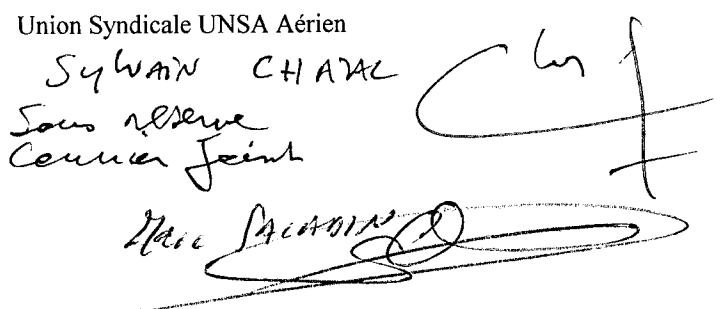 Union Syndicale UNSA Aérien
Sylvain CHAZAL
Sous réserve
Courrier joint
Marc SALADIN